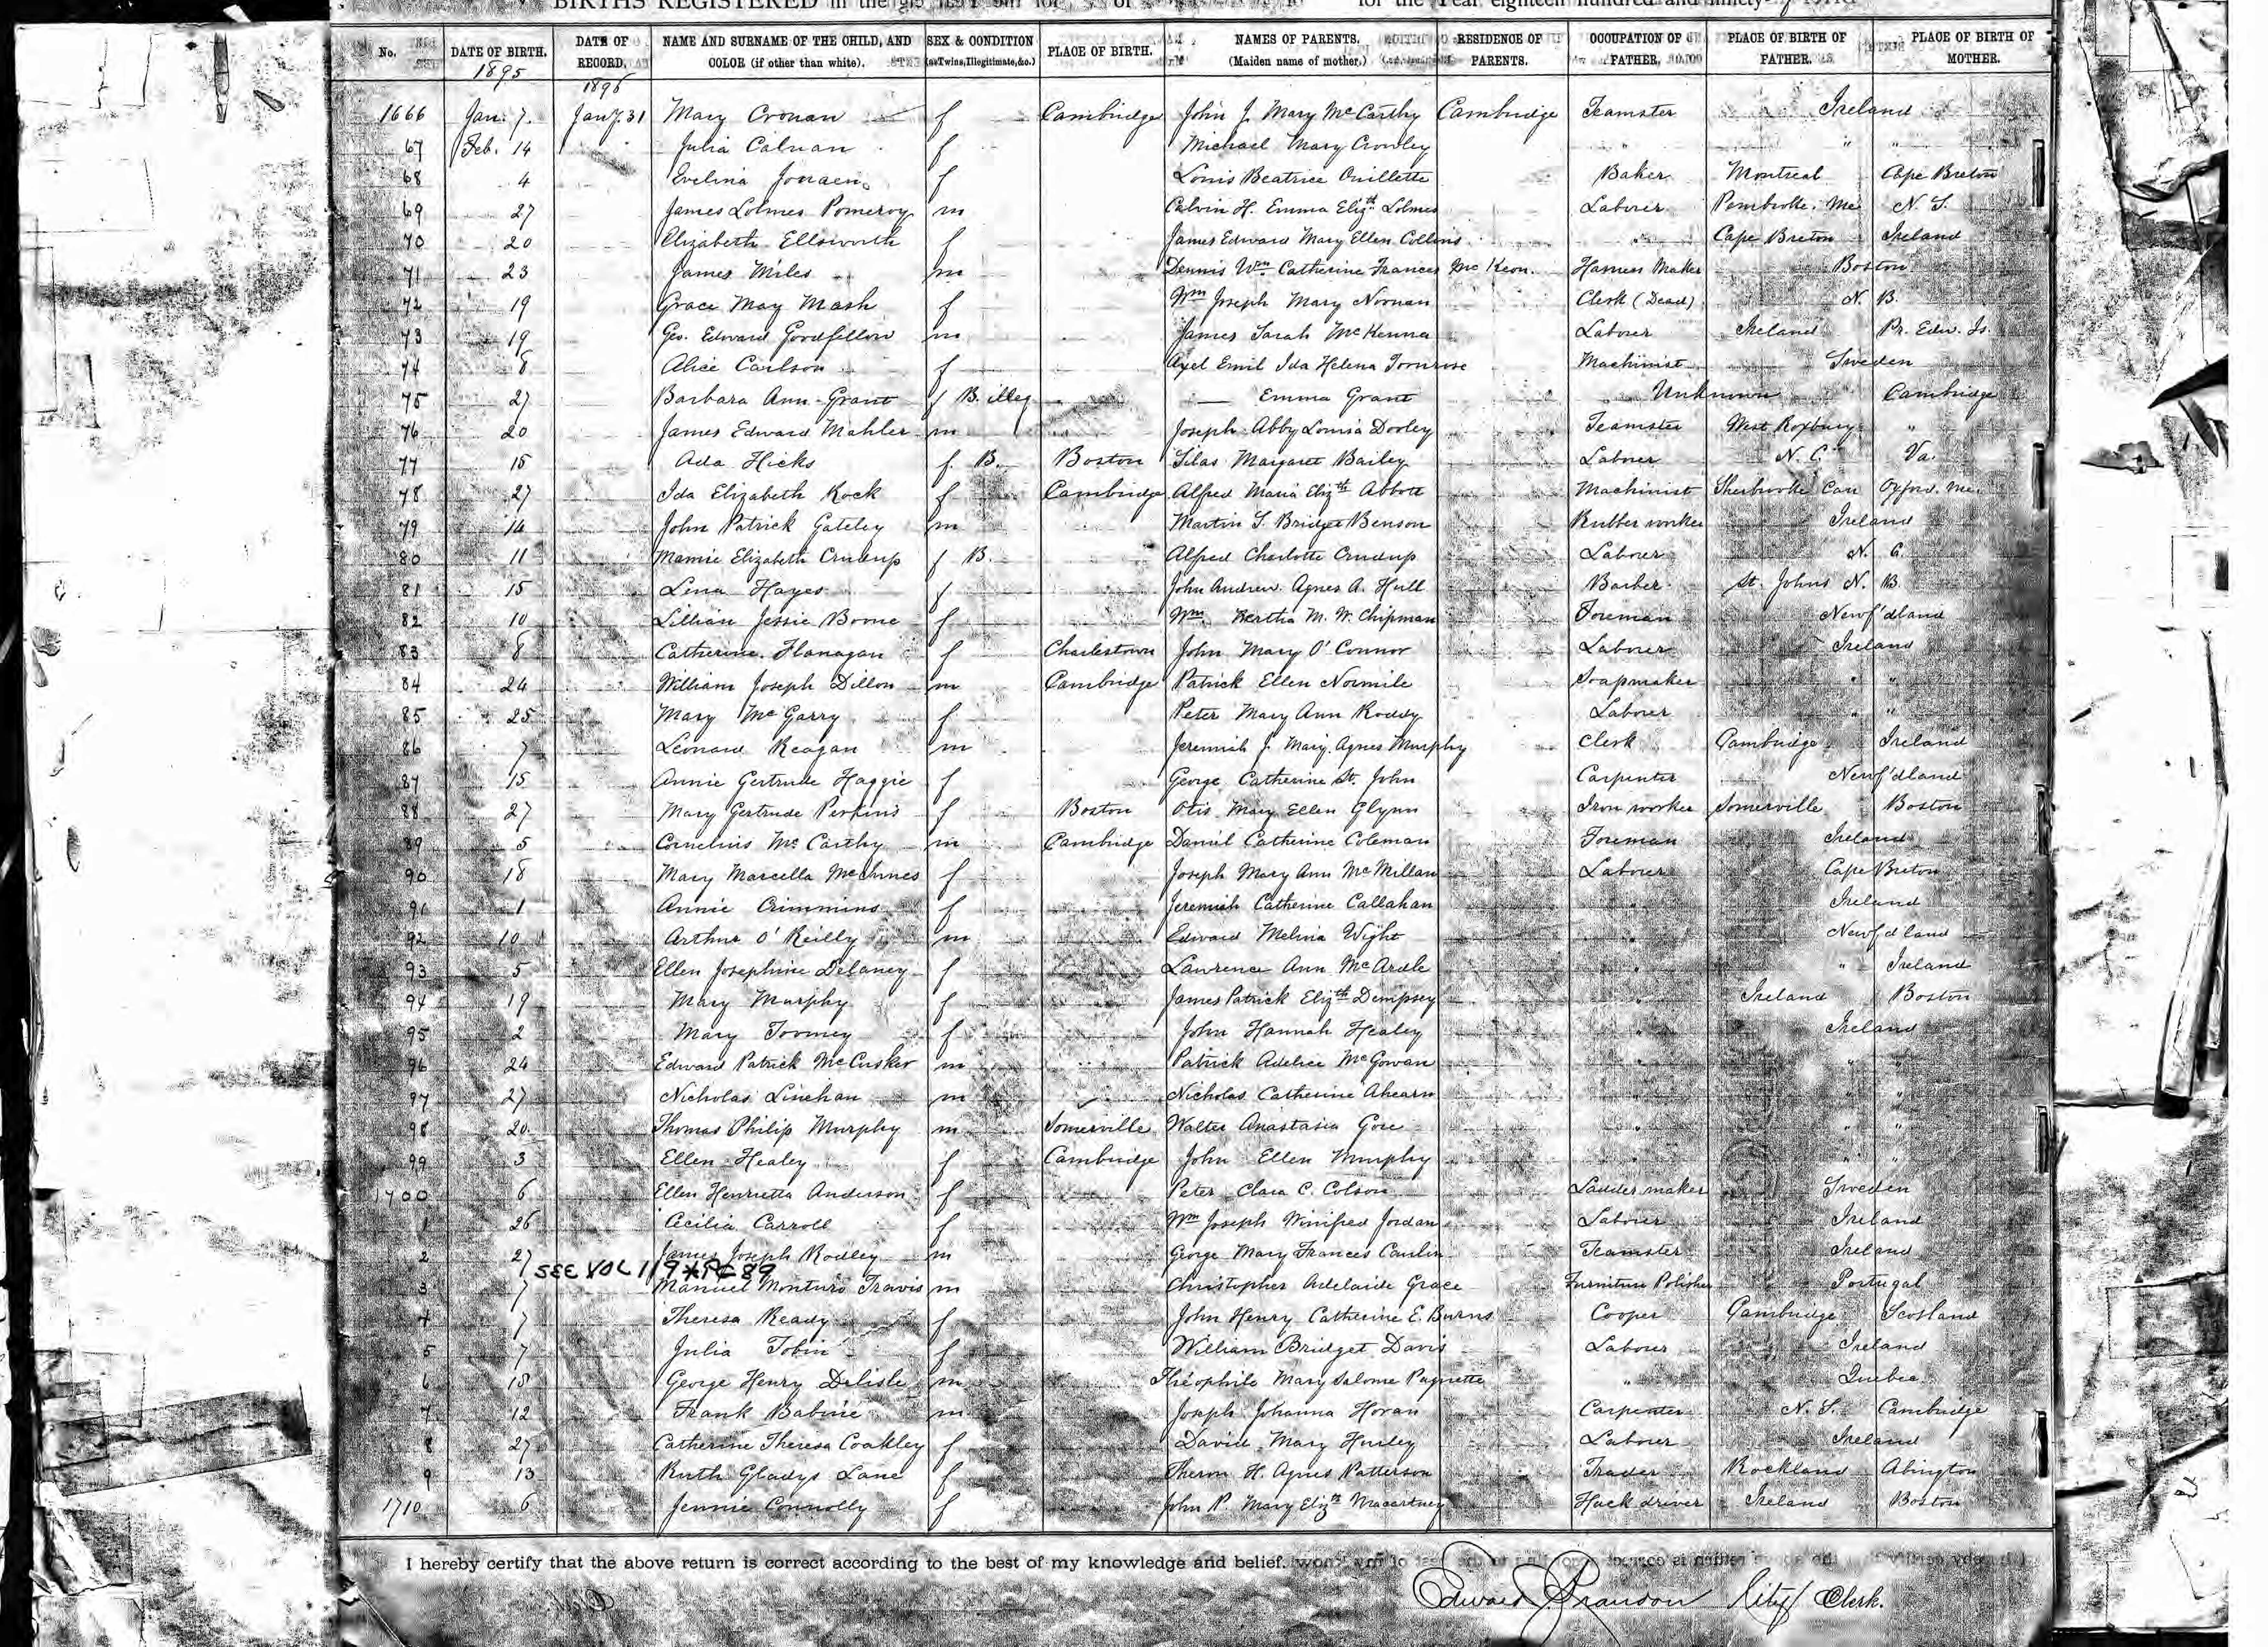 BIRTHS REGISTERED in the for the Year eighteen hundred and ninety-
No. DATE OF BIRTH. DATE OF RECORD. NAME AND SURNAME OF THE CHILD, AND COLOR (if other than white). SEX & CONDITION (as Twins, Illegitimate, &c.) PLACE OF BIRTH. NAMES OF PARENTS. (Maiden name of mother.) RESIDENCE OF PARENTS. OCCUPATION OF FATHER. PLACE OF BIRTH OF FATHER. PLACE OF BIRTH OF MOTHER.
1895 1896
1666 Jan. 7. Jany. 31 Mary Cronan f Cambridge John J. Mary McCarthy Cambridge Teamster Ireland
67 Feb. 14 Julia Calnan f Michael Mary Crowley " " "
68 4 Evelina f Louis Beatrice Ouillette Baker Montreal Cape Breton
69 27 James Lolmes Pomeroy m Calvin H. Emma Elizth Lolmes Laborer Pembroke. Me N. S.
70 20 Elizabeth Ellsworth f James Edward Mary Ellen Collins " Cape Breton Ireland
71 23 James Miles m Dennis Wm Catherine Frances McKeon. Harness Maker Boston
72 19 Grace May Mash f Wm Joseph Mary Noonan Clerk (Dead) N. B.
73 19 Geo. Edward Goodfellow m James Sarah McKenna Laborer Ireland Pr. Edw. Is.
74 8 Alice Carlson f Axel Emil Ida Helena Tornrose Machinist Sweden
75 27 Barbara Ann Grant f B. illeg — Emma Grant Unknown Cambridge
76 20 James Edward Mahler m Joseph Abby Louisa Dooley Teamster West Roxbury "
77 15 Ada Hicks f. B. Boston Silas Margaret Bailey Laborer N. C. Va.
78 27 Ida Elizabeth Rock f Cambridge Alfred Maria Elizth Abbott Machinist Sherbrooke Can Oxford. Me.
79 14 John Patrick Gateley m Martin S. Bridget Benson Rubber worker Ireland
80 11 Mamie Elizabeth Crudup f B. Alfred Charlotte Crudup Laborer N. C.
81 15 Lena Hayes f John Andrew Agnes A. Hull Barber St. Johns N. B.
82 10 Lillian Jessie Boone f Wm Bertha M. W. Chipman Foreman Newf'dland
83 8 Catherine Flanagan f Charlestown John Mary O'Connor Laborer Ireland
84 24 William Joseph Dillon m Cambridge Patrick Ellen Normile Soapmaker " "
85 25 Mary McGarry f Peter Mary Ann Roddy Laborer " "
86 7 Leonard Reagan m Jeremiah J. Mary Agnes Murphy Clerk Cambridge Ireland
87 15 Annie Gertrude Haggie f George Catherine St. John Carpenter Newf'dland
88 27 Mary Gertrude Perkins f Boston Otis Mary Ellen Glynn Iron worker Somerville Boston
89 5 Cornelius McCarthy m Cambridge Daniel Catherine Coleman Foreman Ireland
90 18 Mary Marcella McInnes f Joseph Mary Ann McMillan Laborer Cape Breton
91 1 Annie Crimmins f Jeremiah Catherine Callahan " Ireland
92 10 Arthur O'Reilly m Edward Melvina Wight " Newf'dland
93 5 Ellen Josephine Delaney f Lawrence Ann McArdle " " Ireland
94 19 Mary Murphy f James Patrick Elizth Dempsey " Ireland Boston
95 2 Mary Toomey f John Hannah Healey " Ireland
96 24 Edward Patrick McCusker m Patrick McGowan " " "
97 27 Nicholas Linehan m Nicholas Catherine Ahearn " " "
98 20 Thomas Philip Murphy m Somerville Walter Anastasia Gore " " "
99 3 Ellen Healey f Cambridge John Ellen Murphy " " "
1700 6 Ellen Henrietta Anderson f Peter Clara C. Colson Ladder maker Sweden
1 26 Cecilia Carroll f Wm Joseph Winifred Jordan Laborer Ireland
2 27 James Joseph Rodley m George Mary Frances Teamster Ireland
SEE VOL 119 * PG 89
3 7 Manuel Monturs Travis m Christopher Adelaide Grace Furniture Polisher Portugal
4 7 Theresa Ready f John Henry Catherine E. Burns Cooper Cambridge Scotland
5 7 Julia Tobin f William Bridget Davis Laborer Ireland
6 18 George Henry Delisle m Théophile Mary Salome Paquette " Quebec
7 12 Frank Babine m Joseph Johanna Horan Carpenter N. S. Cambridge
8 27 Catherine Theresa Coakley f David Mary Hurley Laborer Ireland
9 13 Ruth Gladys Lane f Theron H. Agnes Patterson Trader Rockland Abington
1710 6 Jennie Connolly f John P. Mary Elizth Macartney Hack driver Ireland Boston
I hereby certify that the above return is correct according to the best of my knowledge and belief.
Edward J. Brandon City Clerk.